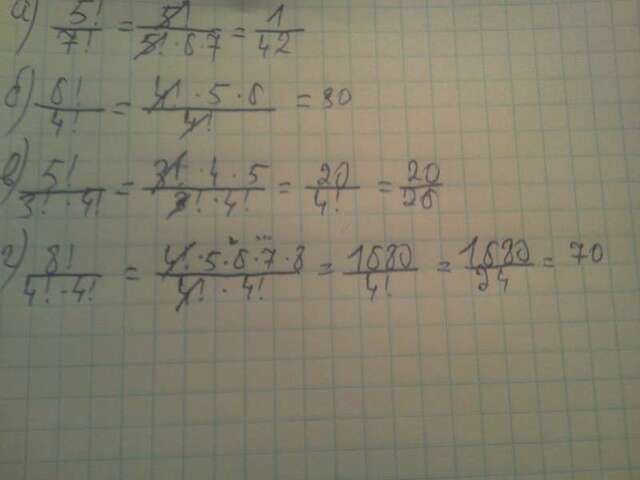 а) 5!/7! = 5!/5!·6·7 = 1/42
б) 6!/4! = 4!·5·6/4! = 30
в) 5!/3!·4! = 3!·4·5/3!·4! = 20/4! = 20/26
г) 8!/4!·4! = 4!·5·6·7·8/4!·4! = 1680/4! = 1680/24 = 70